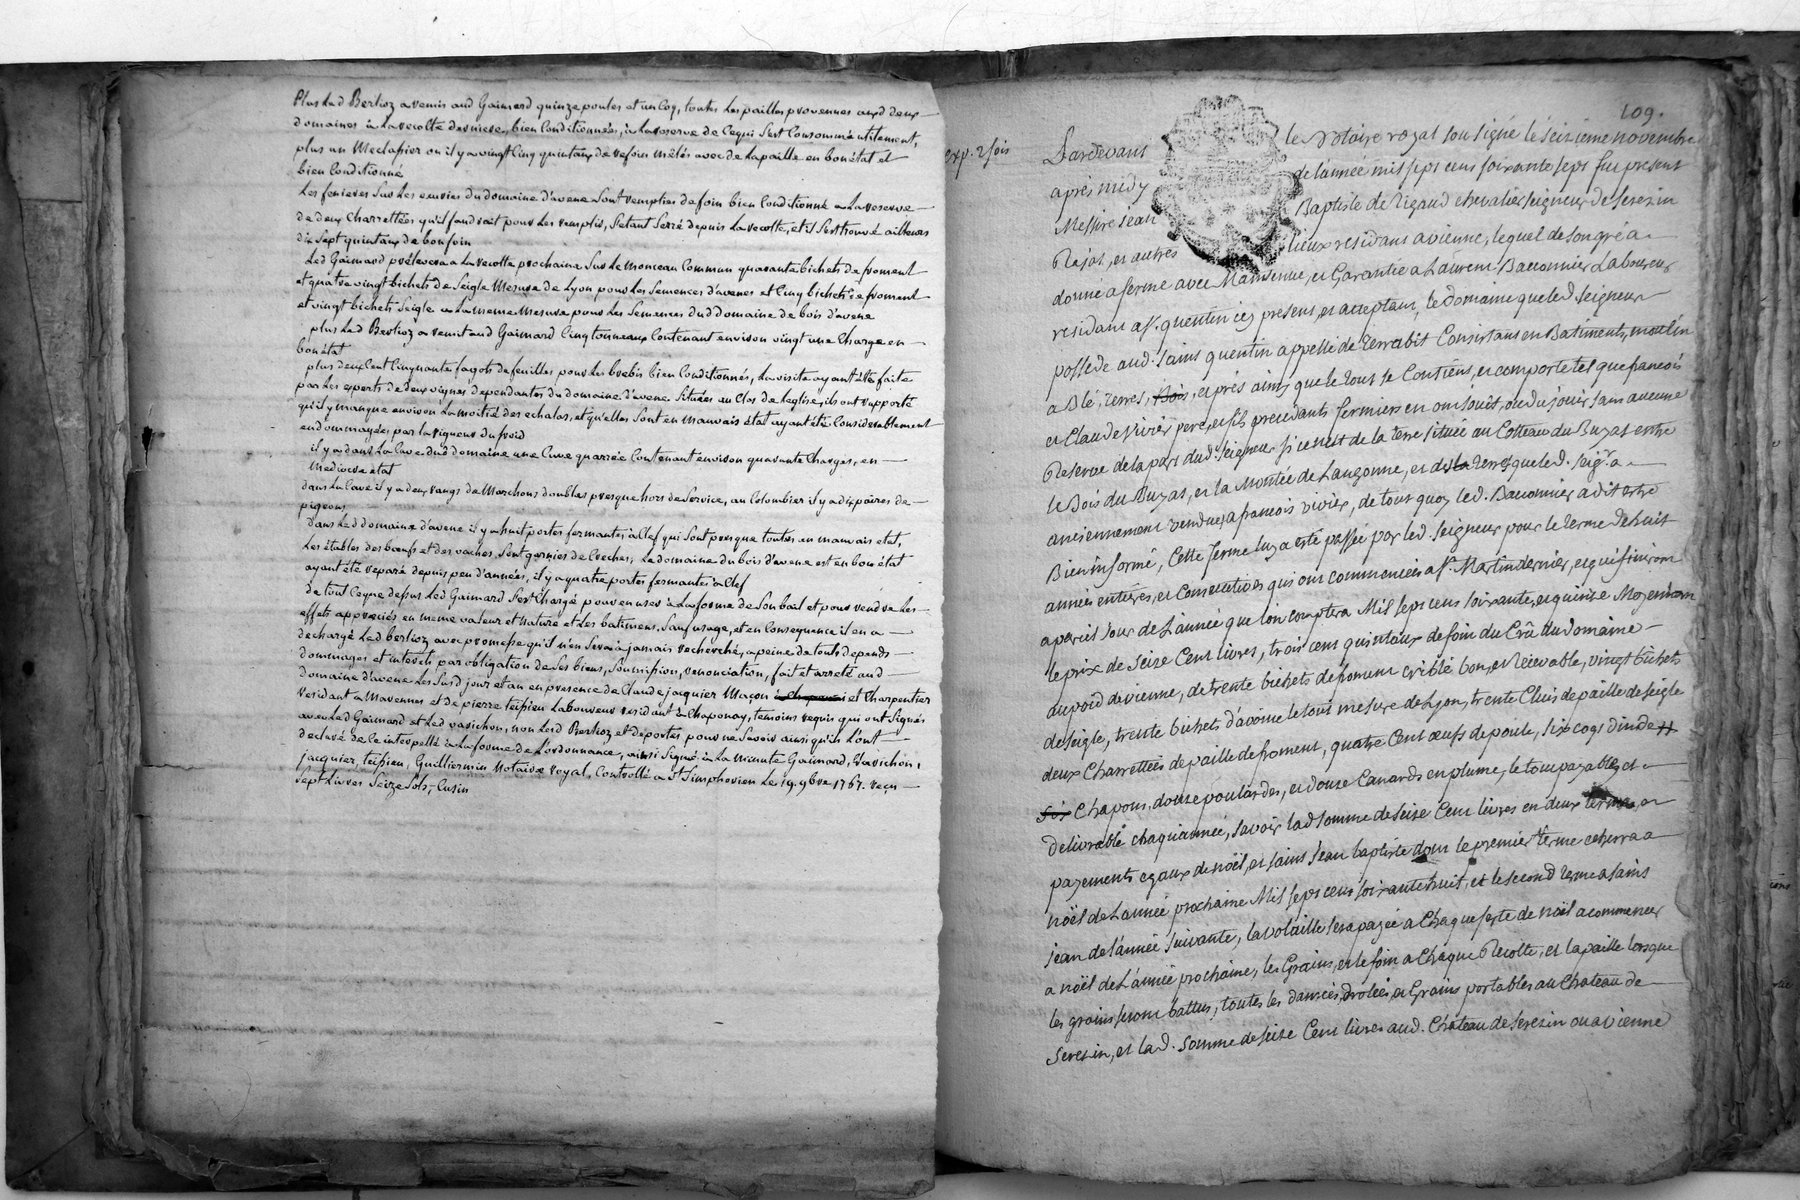 Plus Led Berlioz a remis aud Gaimard quinze poules et un Coq, toutes Les pailles provennes auxd deux
domaines à La recolte derniere, bien Conditionnées, à La reserve de Cequi S'est Consommé utilement,
plus un Meclassier ou il y a vingt Cinq quintaux de refoin mêlés avec de La paille en bon état et
bien Conditionné
Les fenieres Sur Les ecuries du domaine d'avene Sont remplies de foin bien Conditionné a La reserve
de deux Charrettées qu'il faudroit pour Les remplir, S'etant Serré depuis La recolte, et il S'est trouvé ailleurs
dix Sept quintaux de bon foin
Led Gaimard prélevera a La recolte prochaine Sur Le monceau Commun quarante bichets de froment
et quatre vingt bichets de Seigle Mesure de Lyon pour Les Semences d'avenes et Cinq bichets de froment
et vingt bichets Seigle a La meme Mesure pour Les Semences dud Domaine de bois d'avene
plus Led Berlioz a remit aud Gaimard Cinq tonneaux Contenant environ vingt une Charge en
bon état
plus deux Cent Cinquante fagots de feuilles pour Les brebis bien Conditionnés, La visite ayant été faite
par Les experts de deux vignes dependantes du domaine d'avene Situées au Clos de Leglise, ils ont rapporté
qu'il y manque environ La moitié des echalas, et qu'elles Sont en mauvais état ayant été Considerablement
endommagées par La rigueur du froid
il y a dans La Cave dud domaine une Cuve quarrée Contenant environ quarante Charges, en
mediocre état
dans La Cave il y a deux rangs de Marchons doubles presque hors de Service, au Colombier il y a dix paires de
pigeons
dans Led domaine d'avene il y a huit portes fermantes à Clef qui Sont presque toutes en mauvais etat,
Les étables des bœufs et des vaches Sont garnies de Creches, Le domaine du bois d'avene est en bon état
ayant été reparé depuis peu d'années, il y a quatre portes fermantes à Clef
de tout Ceque dessus Led Gaimard S'est Chargé pour en user à La forme de Son bail et pour rendre Les
effets appreciés en meme valeur et Nature et Les batimens, Sauf usage, et en Consequence il en a
dechargé Led berlioz avec promesse qu'il n'en Sera à jamais recherché, a peine de touts depends
dommages et interets par obligation de Ses biens, Soumission, renonciation, fait et arreté aud
domaine d'avene Les Susd jour et an en presence de Claude jacquier Maçon à Chaponai et Charpentier
residant a Marennes et de pierre teissien Laboureur residant à Chaponay, temoins requis qui ont Signés
avec Led Gaimard et Led ravichon, non Led Berlioz et deportes pour ne Savoir ainsi qu'ils L'ont
declaré de ce interpellé a La forme de L'ordonnance, ainsi Signé à La Minute Gaimard, Ravichon,
jacquier, teissien, Guillermin Notaire royal, Controllé a St Simphorien Le 19. 9bre 1767. reçu
Sept Livres Seize Sols, Cusin
109.
exp. 2 fois
Pardevant le Notaire royal sousigné le seizième novembre
après midy de l'année mil sept cens soixante sept fut present
Messire Jean Baptiste de Rigaud chevalier seigneur de Serezin
Rajat, et autres lieux residant a vienne, lequel de son gré a
donné a ferme avec Maintenue, et Garantie a Laurent Baconnier Laboureur
residant a St. quentin icy present, et acceptant, le domaine que led. Seigneur
possède aud. saint quentin appellé de Terrabit Consistant en Batiments, moulin
a Blé, terres, Bois, et prés ainsi que le tout se Contient, et comporte tel que francois
et Claude Vivier pere, et fils precedants fermiers en ont jouis, ou du jouir sans aucune
Reserve de la part dud. Seigneur si ce n'est de la terre située au Cotteau du Buzat entre
le Bois du Buzat, et la Montée de Lauzonne, et des terres que led. seigr. a
anciennement vendues a francois vivier, de tout quoy led. Baconnier a dit etre
Bien informé, Cette ferme luy a eté passée par led. Seigneur pour le terme de huit
années entières, et Consecutives qui ont commencées a St. Martin dernier, et qui finiront
a pareil Jour de L'année que l'on comptera Mil sept cens soixante, et quinze Moyennant
le prix de Seize Cent livres, trois cent quintaux de foin du Crû du domaine
au poid de vienne, de trente bichets de froment criblé bon, et Recevable, vingt bichets
de seigle, trente bichets d'avoine le tout mesure de Lyon, trente Cluis de paille de seigle
deux Charrettées de paille de froment, quatre Cent œufs de poule, six cogs dinde
six Chapons, douze poulardes, et douze Canards en plume, le tout payable, et
delivrable chaqu'année, savoir lad somme de seize Cent livres en deux termes, et
payements egaux de noël, et saint Jean baptiste dont le premier terme echerra a
noël de L'année prochaine Mil sept cens soixante huit, et le second terme a saint
jean de L'année suivante, la volaille sera payée a Chaque feste de noël a commencer
a noël de L'année prochaine, les Grains, et le foin a Chaque Recolte, et la paille lorsque
les grains seront battus, toutes les danrées, et Grains portables au Chateau de
Serezin, et lad. Somme de seize Cent livres aud. Château de Serezin ou a vienne